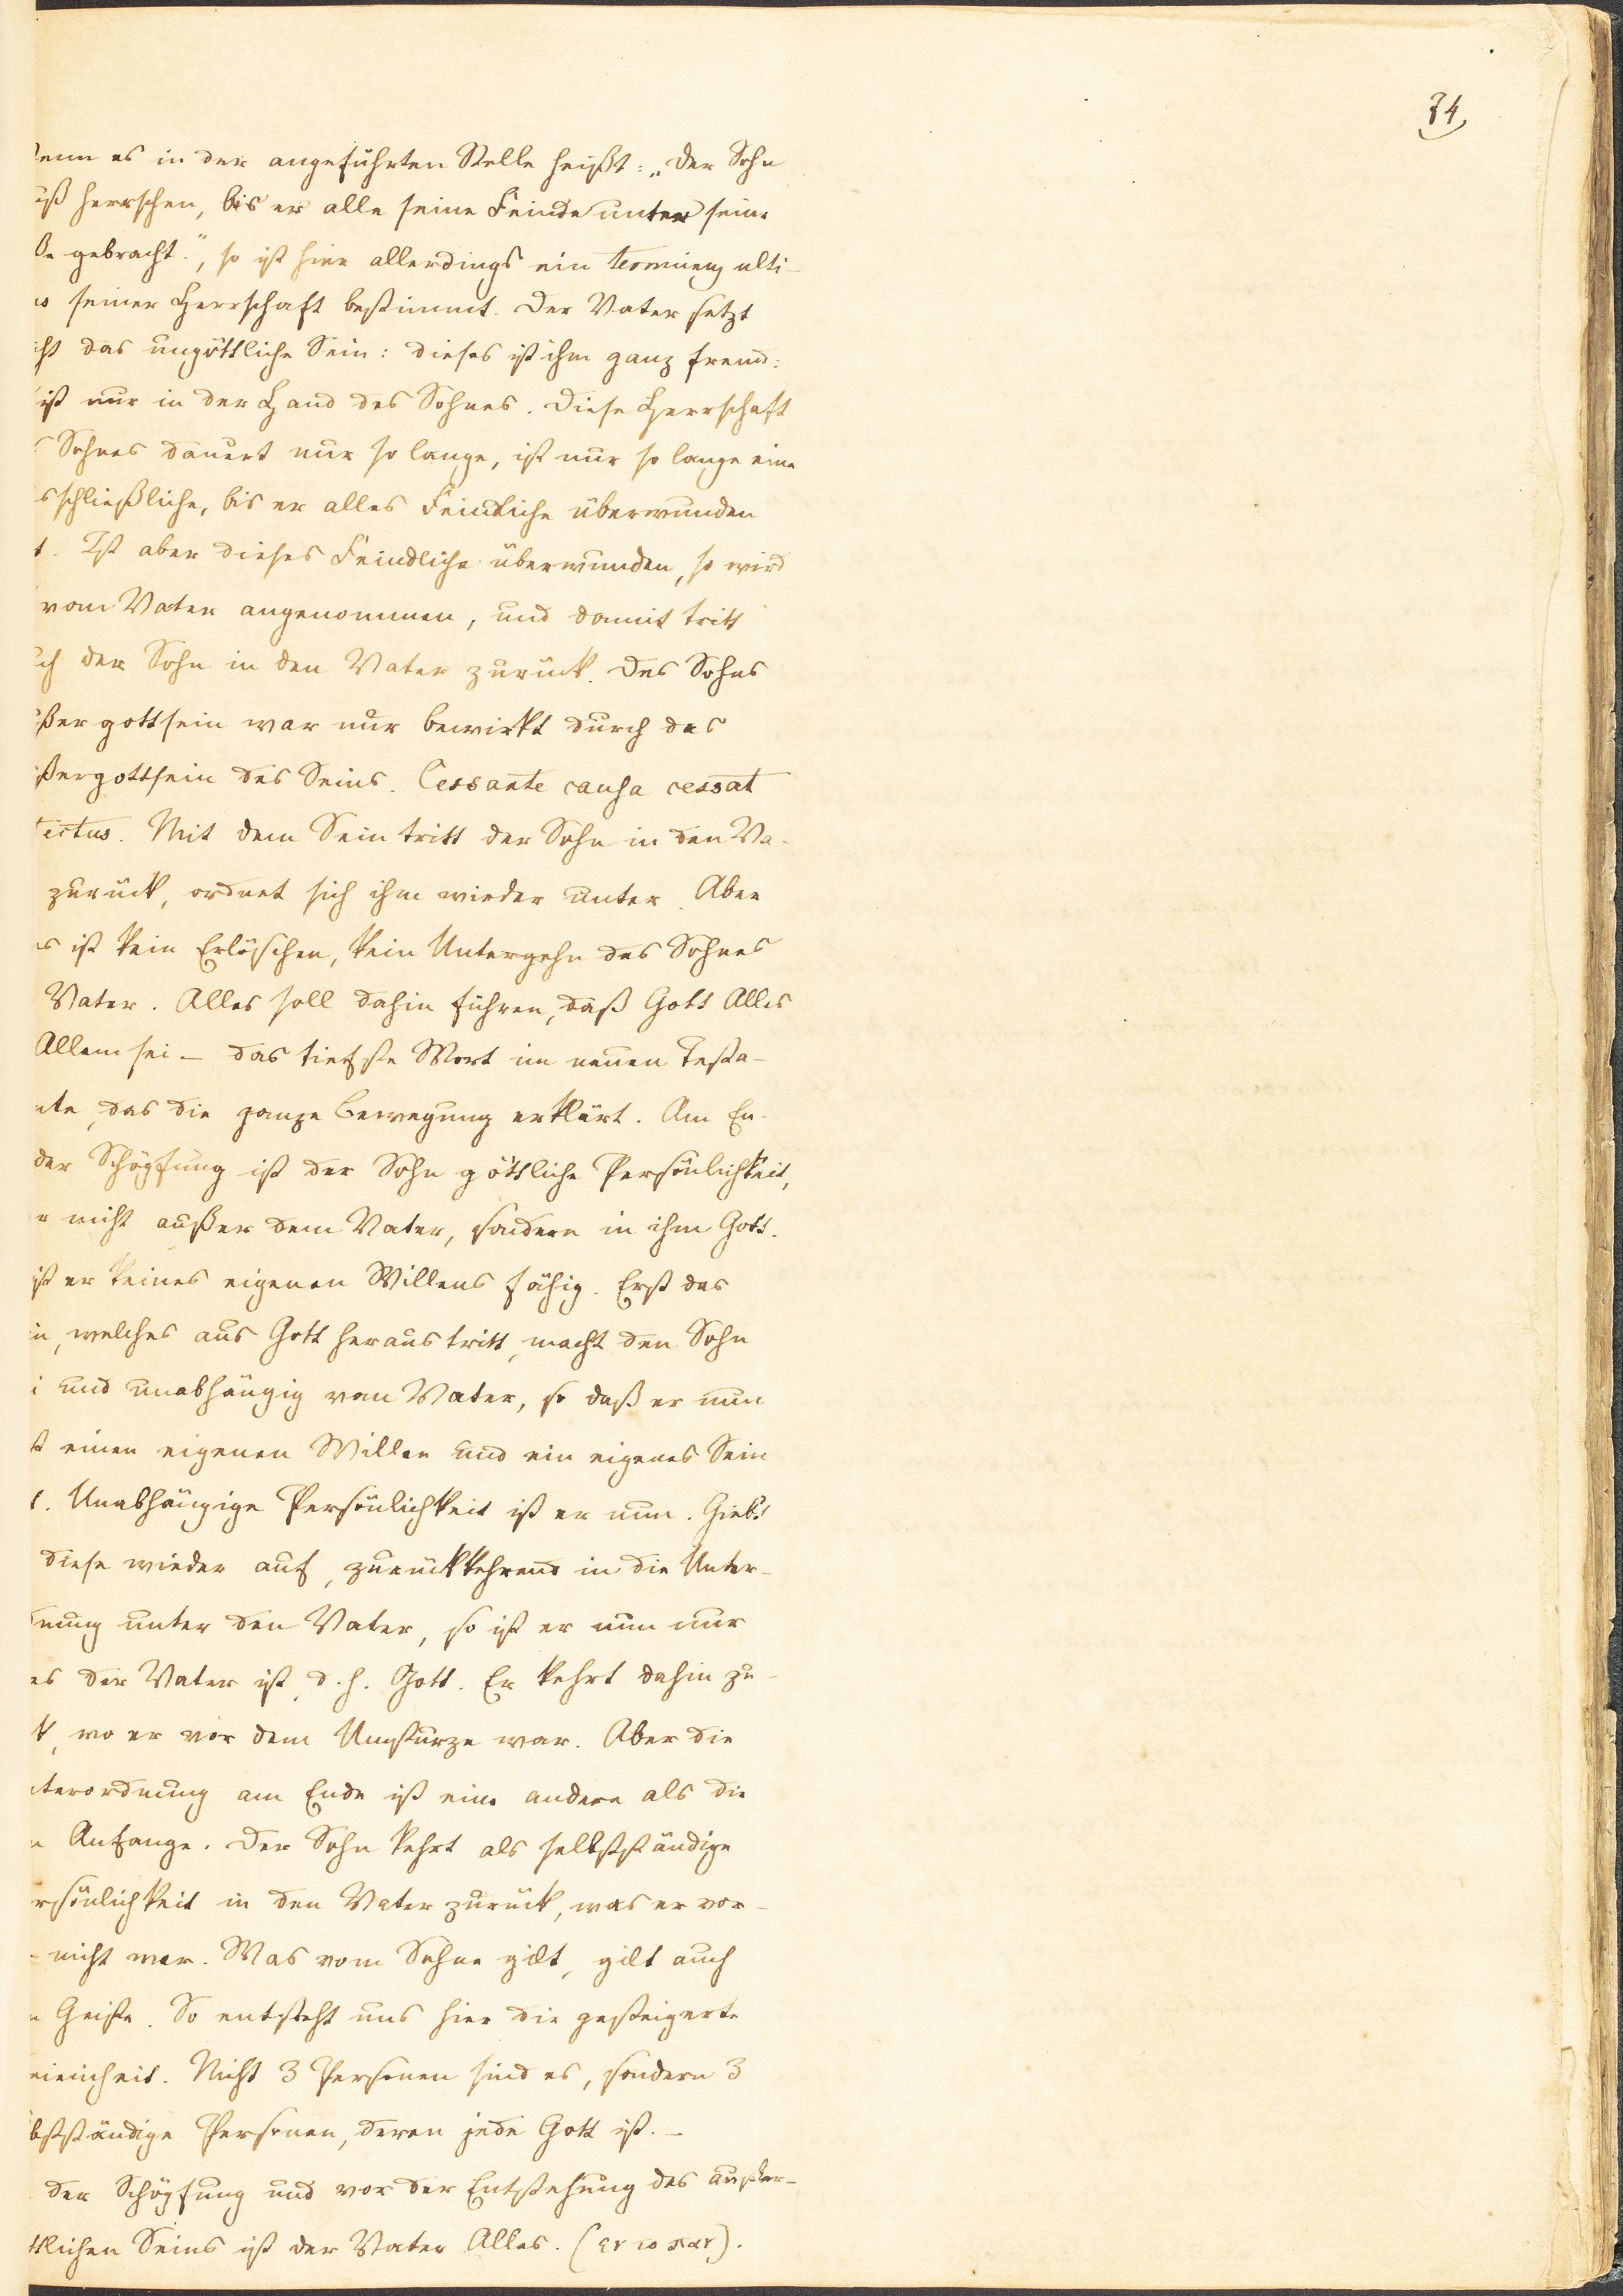 74
enn es in der angeführten Stelle heißt: „Der Sohn
uß herrschen, bis er alle seine Feinde unter seine
ße gebracht.“, so ist hier allerdings ein terminus ulti-
us seiner Herrschaft bestimmt. Der Vater setzt
icht das ungöttliche Sein: dieses ist ihm ganz fremd:
ist nur in der Hand des Sohnes. Diese Herrschaft
s Sohnes dauert nur so lange, ist nur so lange eine
sschließliche, bis er alles Feindliche überwunden
t. Ist aber dieses Feindliche überwunden, so wird
vom Vater angenommen, und damit tritt
uch der Sohn in den Vater zurück. Des Sohns
ußergottsein war nur bewirkt durch das
ußergottsein des Seins. Cessante causa cessat
fectus. Mit dem Sein tritt der Sohn in den Va-
zurück, ordnet sich ihm wieder unter. Aber
es ist kein Erlöschen, kein Untergehn des Sohnes
Vater. Alles soll dahin führen, daß Gott Alles
Allem sei – das tiefste Wort im neuen Testa-
nte, das die ganze Bewegung erklärt. Am En-
der Schöpfung ist der Sohn göttliche Persönlichkeit,
r nicht außer dem Vater, sondern in ihm Gott.
ist er keines eigenen Willens fähig. Erst das
in, welches aus Gott heraustritt, macht den Sohn
i und unabhängig vom Vater, so daß er nun
st einen eigenen Willen und ein eigenes Sein
t. Unabhängige Persönlichkeit ist er nun. Giebt
diese wieder auf, zurückkehrend in die Unter-
dnung unter den Vater, so ist er nun nur
es der Vater ist, d. h. Gott. Er kehrt dahin zu-
k, wo er vor dem Umsturze war. Aber die
terordnung am Ende ist eine andere als die
m Anfange. Der Sohn kehrt als selbstständige
rsönlichkeit in den Vater zurück, was er vor-
nicht war. Was vom Sohne gilt, gilt auch
m Geiste. So entsteht uns hier die gesteigerte
eieinheit. Nicht 3 Personen sind es, sondern 3
bstständige Personen, deren jede Gott ist. –
der Schöpfung und vor der Entstehung des außer-
ttlichen Seins ist der Vater Alles. (εν το παν).